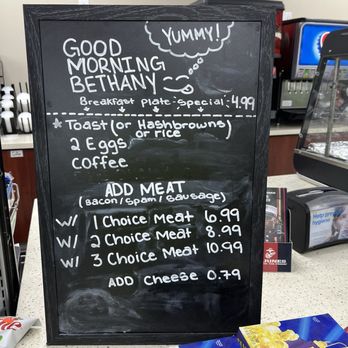 YUMMY!
GOOD
MORNING
BETHANY
Breakfast Plate Special: 4.99
* Toast (or Hashbrowns)
or rice
2 Eggs
coffee
ADD MEAT
(bacon/spam/sausage)
W/ 1 Choice Meat 6.99
W/ 2 Choice Meat 8.99
W/ 3 Choice Meat 10.99
ADD Cheese 0.79